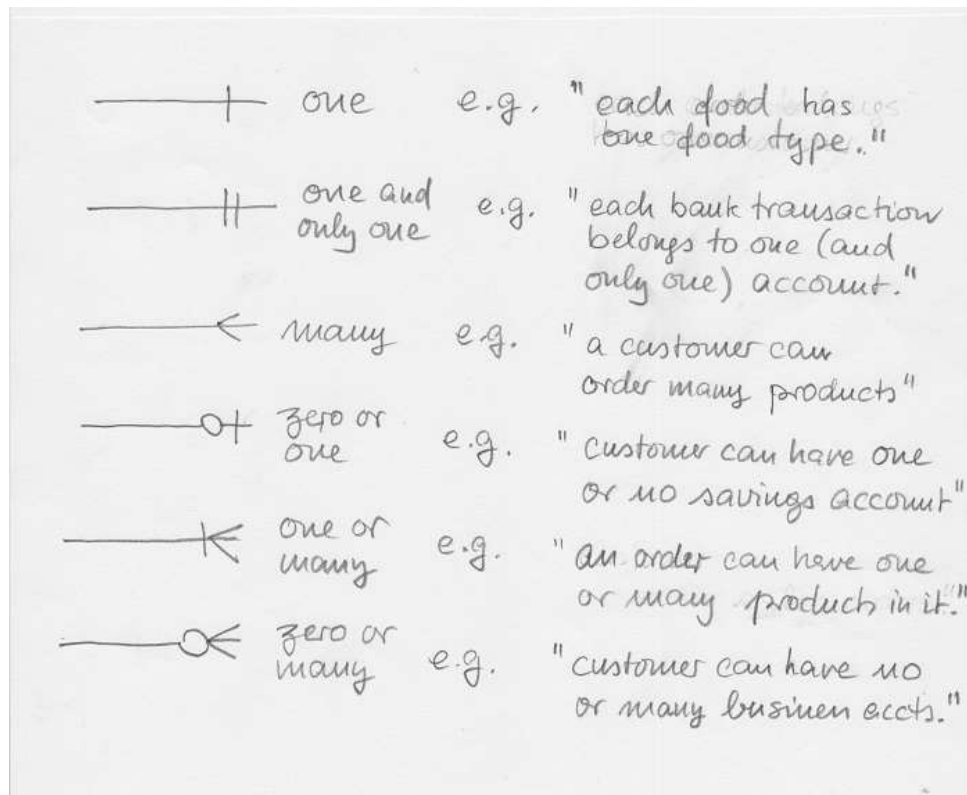 one e.g. "each food has
one food type."
one and
only one e.g. "each bank transaction
belongs to one (and
only one) account."
many e.g. "a customer can
order many products"
zero or
one e.g. "customer can have one
or no savings account"
one or
many e.g. "an order can have one
or many products in it."
zero or
many e.g. "customer can have no
or many business accts."